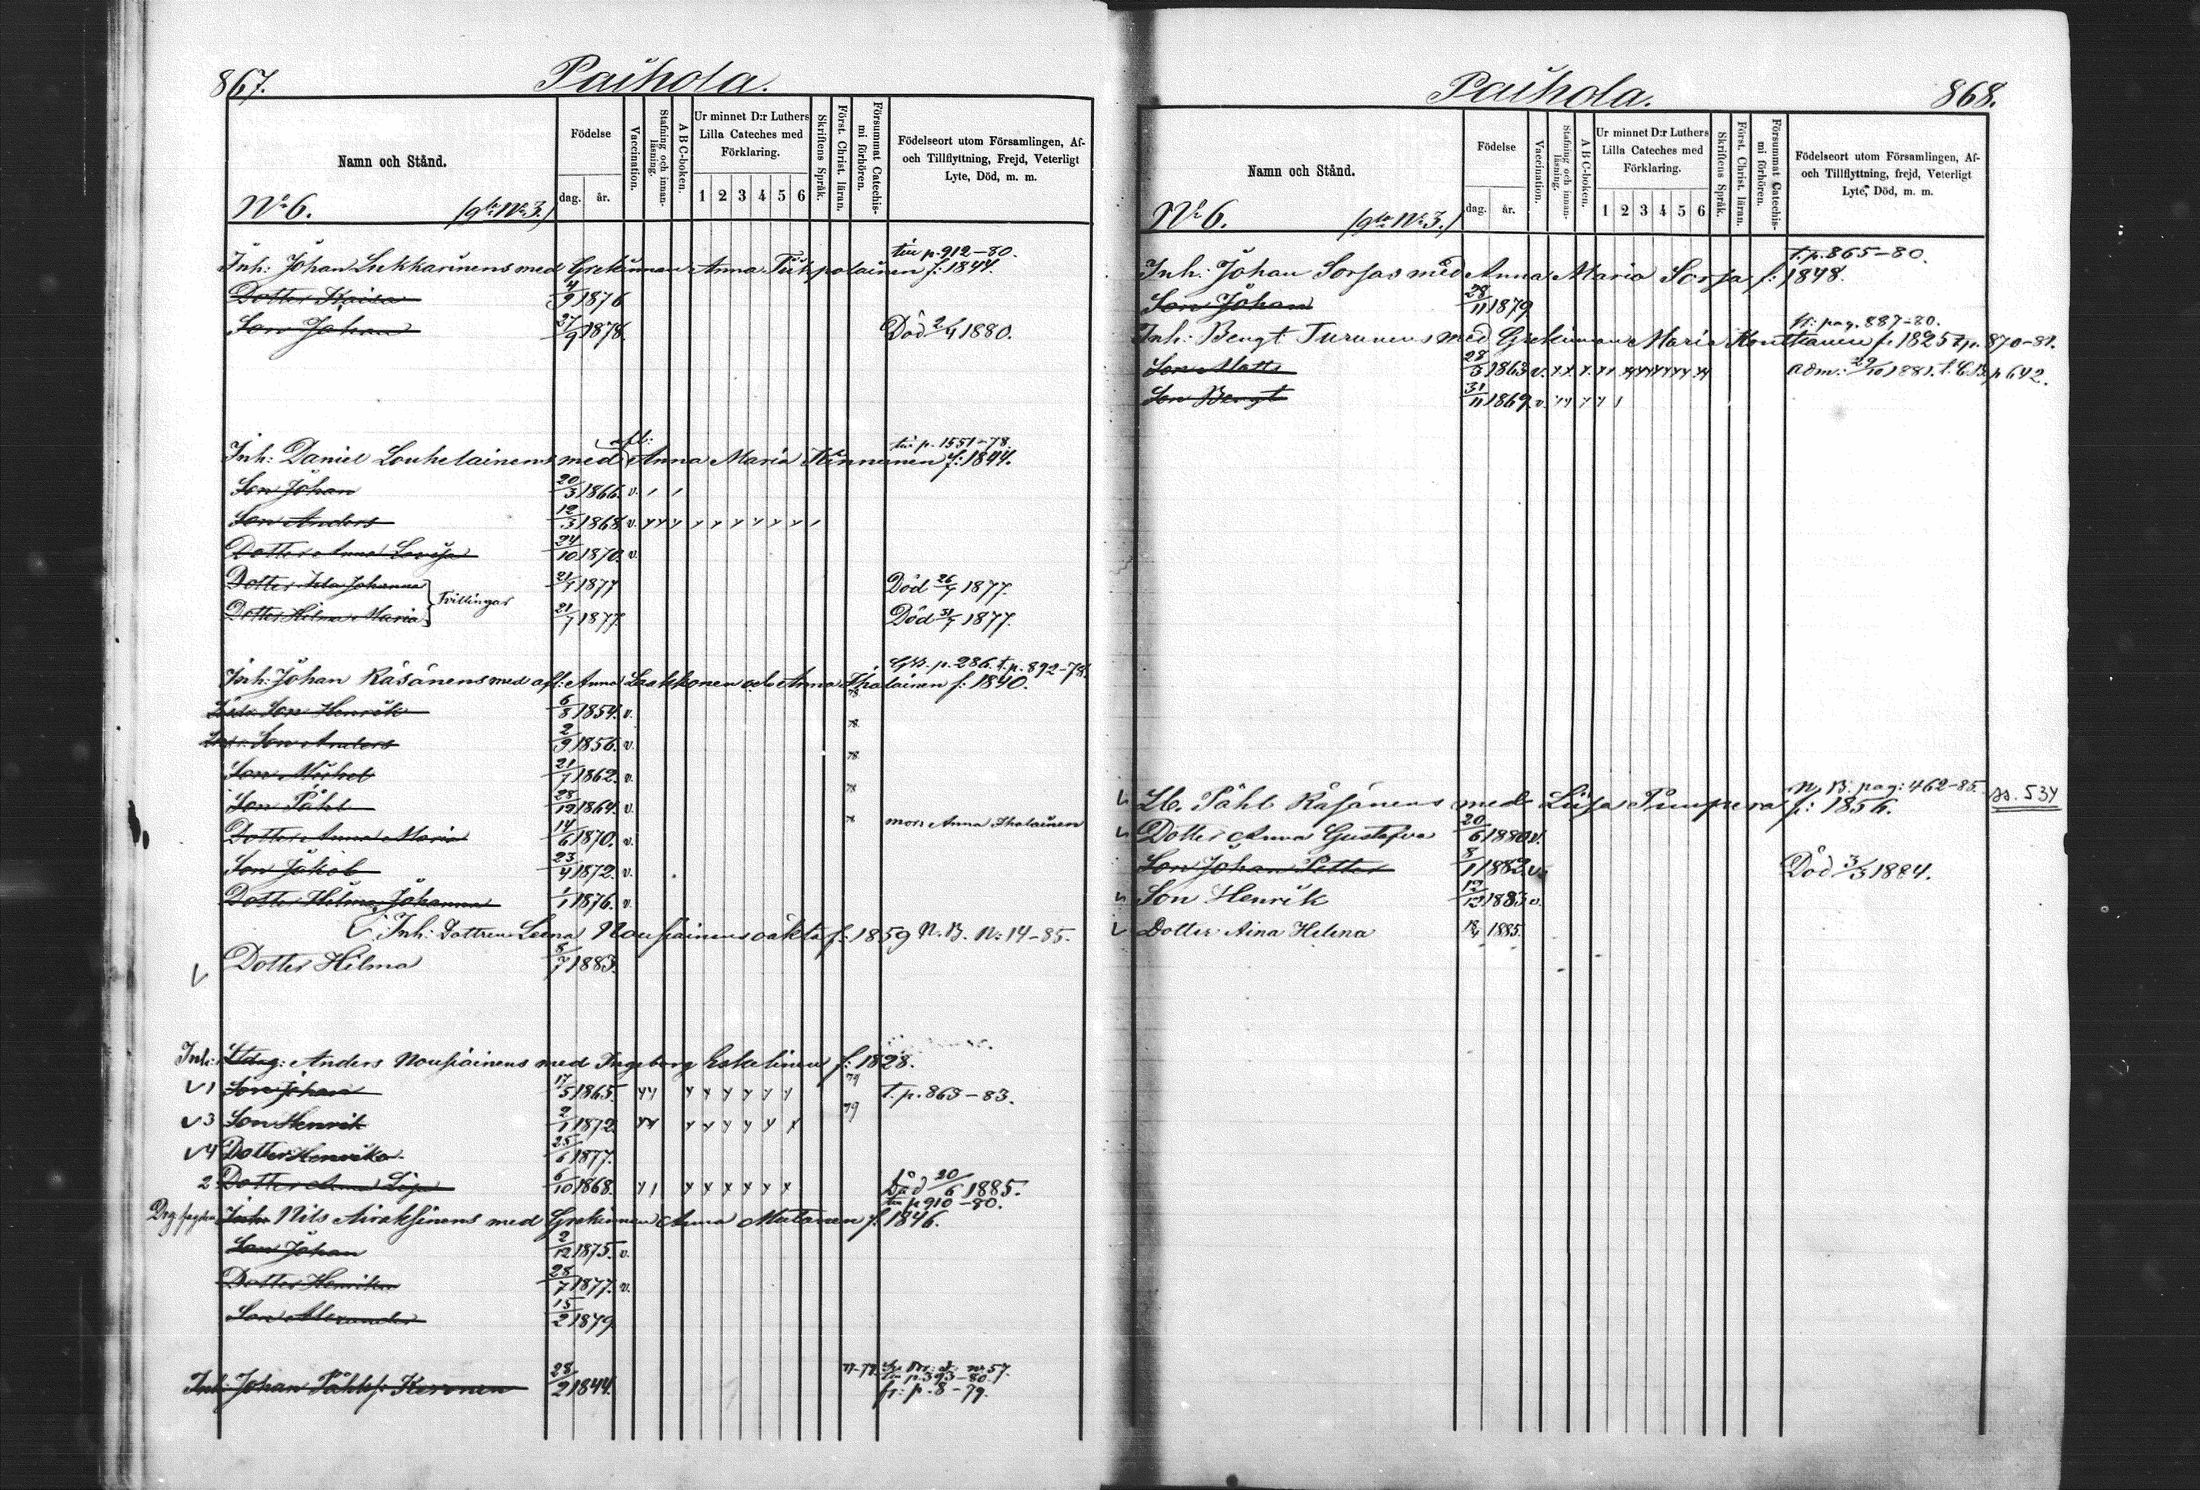 867.
Paihola.
Namn och Stånd.
Födelse
dag.
år.
Vaccination.
Stafning och innanläsning.
A B C-boken.
Ur minnet D:r Luthers
Lilla Cateches med
Förklaring.
1 2 3 4 5 6
Skriftens Språk.
Först. Christ. läran.
Försummat Catechismi förhören.
Födelseort utom Församlingen, Af-
och Tillflyttning, Frejd, Veterligt
Lyte, Död, m. m.
No 6. (gla No 3.)
till p. 912-80.
Inh: Johan Lukkarinens med Grekinnan Anna f: 1844.
Dotter Kaisa 14/9 1876
Son Johan 27/9 1878. Död 2/4 1880.
till p. 1551-78.
afl:
Inh: Daniel Louhelainens med Anna Maria Kinnunen f: 1844.
Son Johan 20/3 1866. v.
Son Anders 12/3 1868. v.
Dotter Anna Lovisa 24/10 1870. v.
Dotter Ida Johanna 21/7 1877 Död 26/7 1877.
Tvillingar
Dotter Hilma Maria 21/7 1877. Död 31/7 1877.
p. 286. t. p. 892-78.
Inh: Johan Räsänens med afl: Anna Laakkonen och Anna Ihalainen f: 1840.
Son Henrik 6/8 1854. v. 78
Son Anders 2/9 1856. v. 78
Son Michel 21/7 1862. v. 78
Son Påhl 28/12 1864. v. 78
Dotter Anna Maria 14/6 1870. v. mor: Anna Ihalainen
Son Jakob 23/4 1872. v.
Dotter Hilma Johanna 1/1 1876. v.
Inh: Dottren Leena Nousiainens oäkta f: 1859 N. B. No: 14-85.
Dotter Hilma 8/7 1883.
Inh: Anders Nousiainens med Ingeborg Eskelinen f: 1828.
1 Son Johan 17/5 1865. 79 t. p. 863-83.
3 Son Henrik 2/1 1872 79
4 Dotter Henrika 25/6 1877.
2 Dotter Anna Lisa 6/10 1868. Död 20/6 1885.
till p 910-80.
Inh: Nils Airaksinens med Grekinnan Anna Mutanen f. 1846.
Son Johan 2/12 1875. v.
Dotter Henrika 28/7 1877. v.
Son Alexander 15/2 1879
Inh: Johan Påhls: Kervinen 28/2 1844. 77-78.
till p. 393-80.
fr: p. 8-79.
Paihola.
868.
Namn och Stånd.
Födelse
dag.
år.
Vaccination.
Stafning och innanläsning.
A B C-boken.
Ur minnet D:r Luthers
Lilla Cateches med
Förklaring.
1 2 3 4 5 6
Skriftens Språk.
Först. Christ. läran.
Försummat Catechismi förhören.
Födelseort utom Församlingen, Af-
och Tillflyttning, frejd, Veterligt
Lyte, Död, m. m.
No 6. (gla No 3.)
t. p. 865-80.
Inh: Johan Sorsas med Anna Maria Sorsa f: 1848.
Son Johan 28/11 1879
fr: pag. 887-80.
Inh: Bengt Turunens med Grekinnan Maria f. 1825 t. p. 870-81.
Son Matts 28/5 1863 v. adm: 29/10 1881. t. C. B. p 642.
Son Bengt 31/11 1869 v.
N. B. pag: 462-85.
Lb. Påhl Räsänens med Liisa Timpera f: 1856.
ss. 534
Dotter Anna Gustafva 20/6 1880 v.
Son Johan Petter 8/1 1882 v. Död 3/3 1884.
Son Henrik 12/12 1883 v.
Dotter Aina Helena 1885.